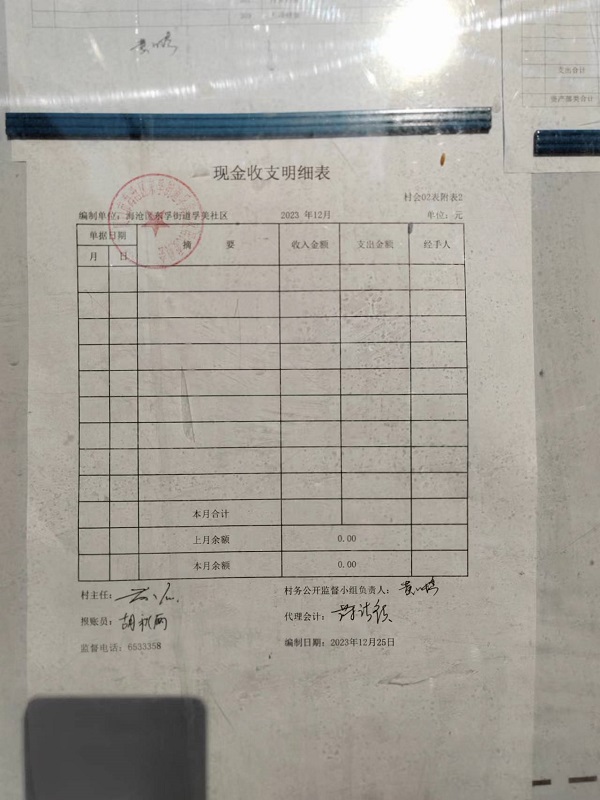 支出合计
资产报废合计
现金收支明细表
村会02表附表2
编制单位：海沧区东孚街道孚美社区 2023 年12月 单位：元
单据日期 摘 要 收入金额 支出金额 经手人
月 日
本月合计
上月余额 0.00
本月余额 0.00
村主任： 村务公开监督小组负责人：
报账员： 代理会计：
监督电话：6533358 编制日期：2023年12月25日